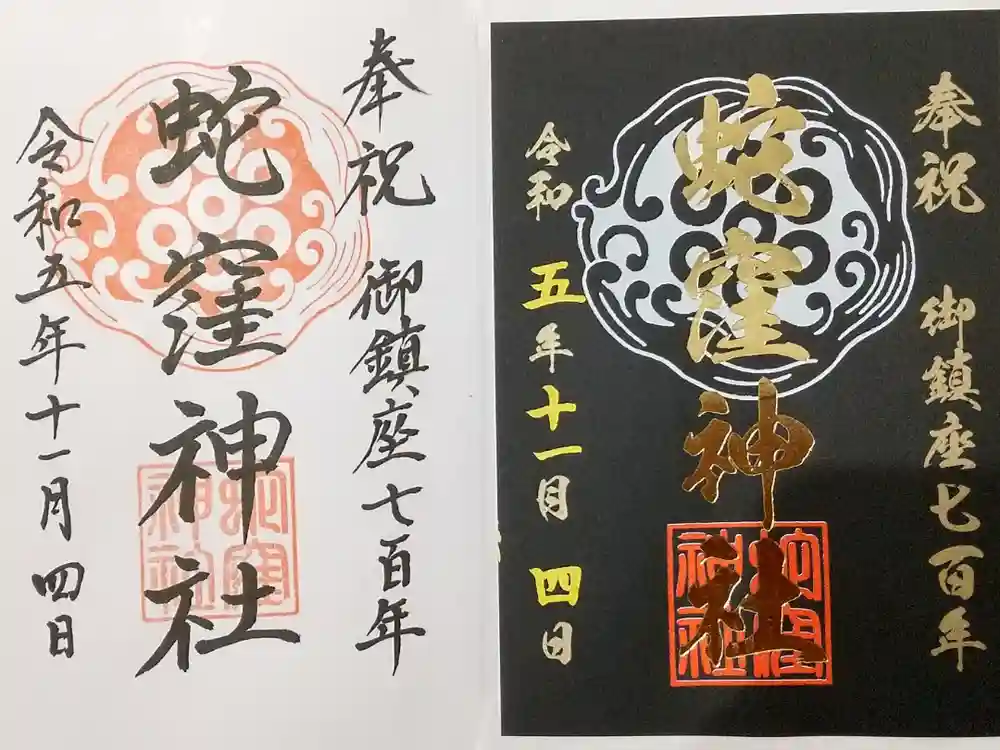 奉祝 御鎮座七百年
蛇窪神社
蛇窪
神社
令和五年十一月四日
奉祝 御鎮座七百年
蛇窪神社
蛇窪
神社
令和五年十一月四日